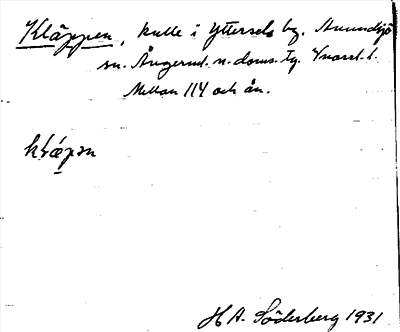 Kläppen, kulle i Ytterselo by. Anundsjö
sn. Ångerml. n. doms. tg. Vnorrl. l.
Mellan 114 och ån.
klæpən
H A. Söderberg 1931